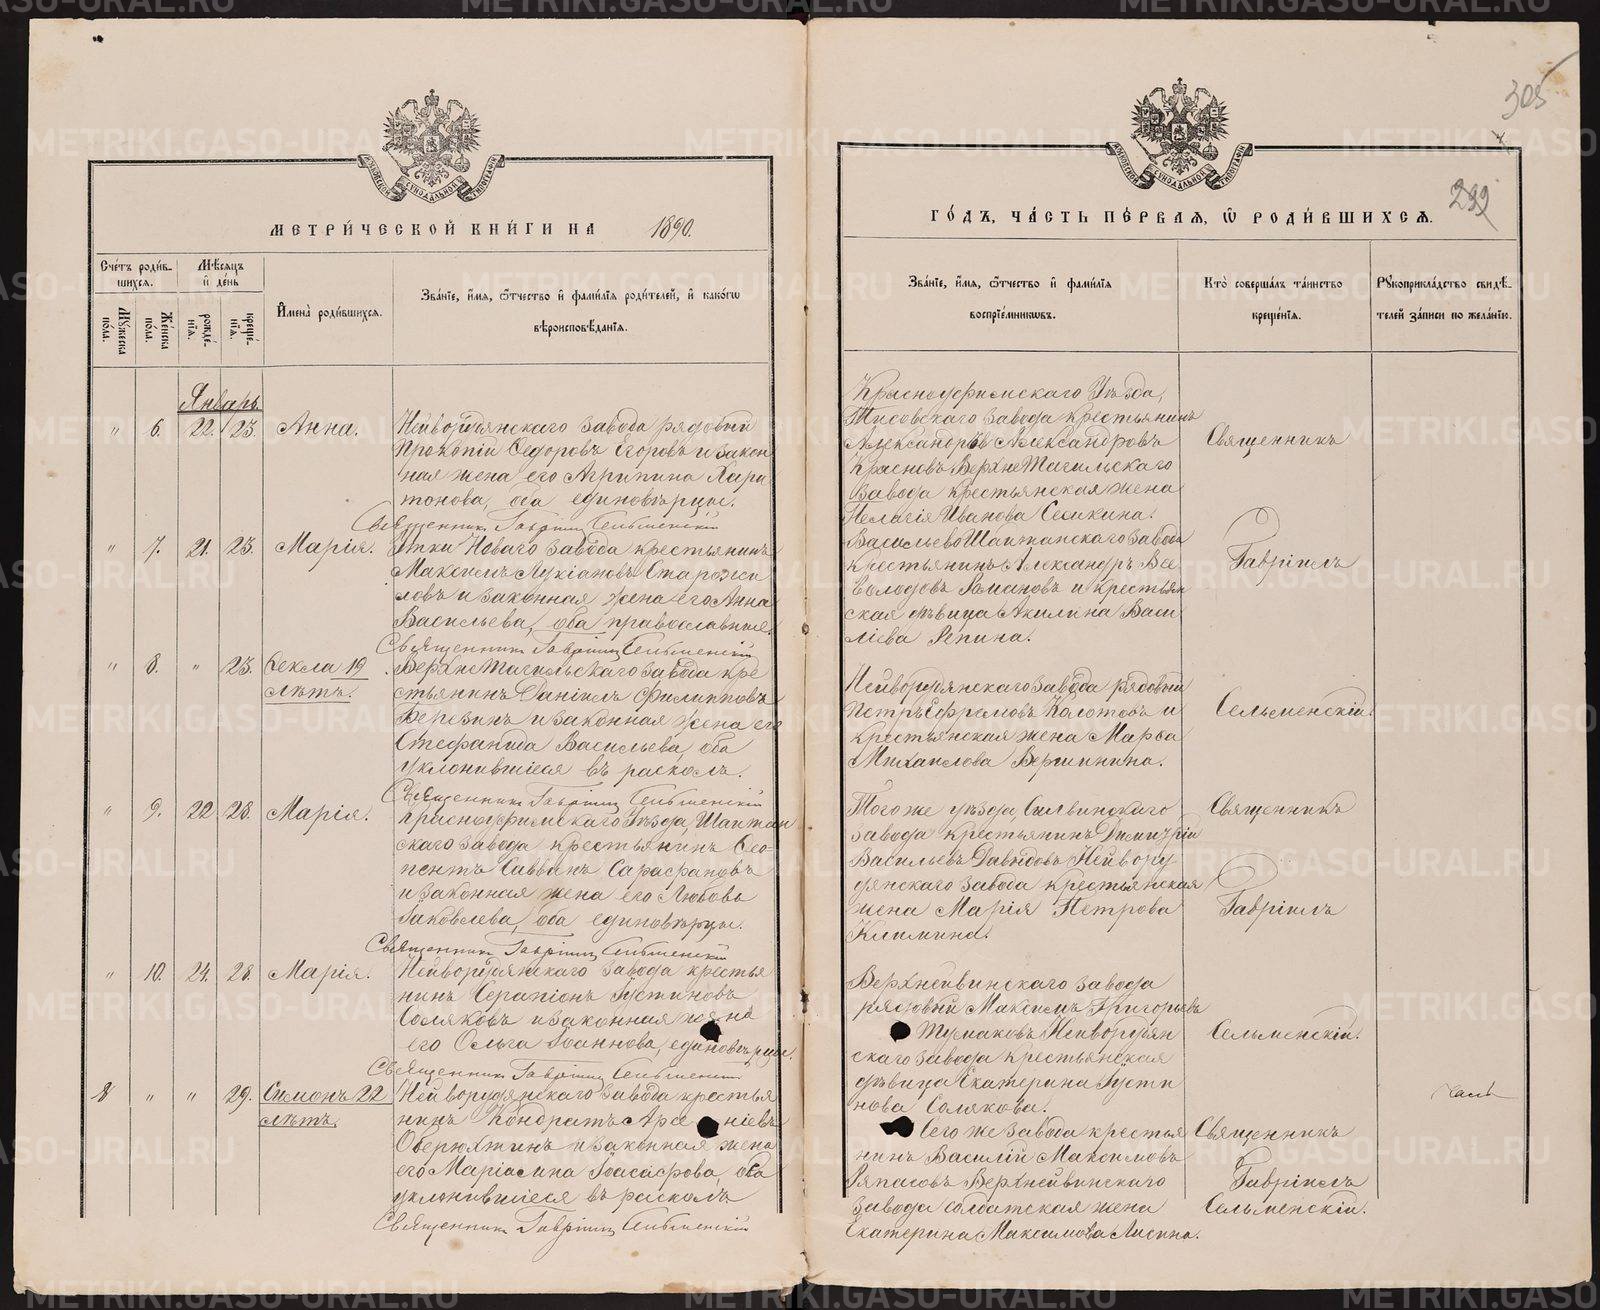 МЕТРИ́ЧЕСКОЙ КНИ́ГИ НА 1890.
Сче́тъ роди́в-
шихся.
Мѣсяцъ
и де́нь
Му́жеска
по́ла.
Же́нска
по́ла.
рожде́-
нія.
креще́-
нія.
Имена̀ роди́вшихся.
Зва́ніе, и́мя, ѻ҆́тчество и҆ фами́лія роди́телей, и҆ како́гѡ
вѣроисповѣ́данія.
Январь.
" 6. 22. 23. Анна.
Нейворудянскаго завода рядовый
Прокопій Ѳедоровъ Егоровъ и закон
ная жена его Агрипина Хари
тонова, оба единовѣрцы.
Священникъ Гавріилъ Сельменскій
" 7. 21. 23. Марія.
Утки Новаго завода крестьянинъ
Максимъ Лукіановъ Старожи
ловъ и законная жена его Анна
Васильева, оба православные.
Священникъ Гавріилъ Сельменскій
" 8. " 23. Ѳекла 19
лѣтъ.
Верхне Тагильскаго завода кре
стьянинъ Даніилъ Филипповъ
Березинъ и законная жена его
Стефанида Васильева, оба
уклонившіеся въ расколъ.
Священникъ Гавріилъ Сельменскій
" 9. 22. 28. Марія.
Красноуфимскаго Уѣзда, Шайтан
скаго завода крестьянинъ Ѳео-
пентъ Саввинъ Сарафановъ
и законная жена его Любовь
Іаковлева, оба единовѣрцы.
Священникъ Гавріилъ Сельменскій
" 10. 24. 28. Марія.
Нейворудянскаго завода крестья
нинъ Серапіонъ Іустиновъ
Соляковъ и законная жена
его Ольга Іоаннова, единовѣрцы.
Священникъ Гавріилъ Сельменскій
8 " " 29. Симонъ 22
лѣтъ.
Нейворудянскаго завода крестья
нинъ Кондратъ Арсеніевъ
Оверюхтинъ и законная жена
его Маріамна Іоасафова, оба
уклонившіеся въ расколъ
Священникъ Гавріилъ Сельменскій
305
299
ГО́ДЪ, ЧА́СТЬ ПЕ́РВАЯ, Ѽ РОДИ́ВШИХСЯ.
Зва́ніе, и́мя, ѻ҆́тчество и҆ фами́лія
воспріе́мникѡвъ.
Кто̀ соверша́лъ та́инство
креще́нія.
Рукоприкла́дство свидѣ́-
телей за́писи по жела́нію.
Красноуфимскаго Уѣзда,
Тисовскаго завода крестьянинъ
Александръ Александровъ
Красновъ Верхне Тагильскаго
завода крестьянская жена
Пелагія Иванова Семкина.
Священникъ
Васильево Шайтанскаго завода
крестьянинъ Александръ Все
володовъ Романовъ и крестьян
ская дѣвица Акилина Васи
ліева Рѣпина.
Гавріилъ
Нейворудянскаго завода рядовый
Петръ Ефремовъ Колотовъ и
крестьянская жена Марѳа
Михаилова Вершинина.
Сельменскій.
Того же уѣзда, Сылвинскаго
завода крестьянинъ Димитрій
Васильевъ Давыдовъ Нейвору
дянскаго завода крестьянская
жена Марія Петрова
Климина.
Священникъ
Гавріилъ
Верхнейвинскаго завода
рядовый Максимъ Григорьевъ
Тумаковъ Нейворудян
скаго завода крестьянская
дѣвица Екатерина Іусти
нова Солякова.
Сельменскій.
Сего же завода крестья
нинъ Василій Максимовъ
Ряпасовъ Верхнейвинскаго
завода солдатская жена
Екатерина Максимова Лисина.
Священникъ
Гавріилъ
Сельменскій.